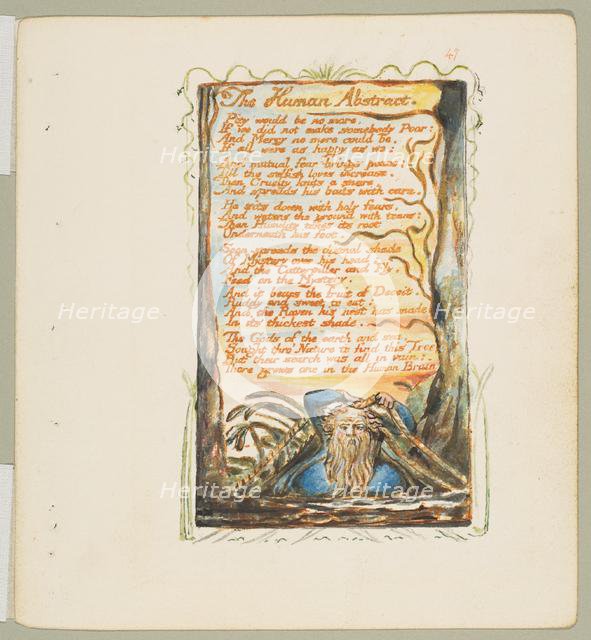 47
The Human Abstract.
Pity would be no more,
If we did not make somebody Poor:
And Mercy no more could be,
If all were as happy as we:
And mutual fear brings peace:
Till the selfish loves increase.
Then Cruelty knits a snare,
And spreads his baits with care.
He sits down with holy fears,
And waters the ground with tears:
Then Humility takes its root
Underneath his foot.
Soon spreads the dismal shade
Of Mystery over his head:
And the Catterpiller and Fly,
Feed on the Mystery.
And it bears the fruit of Deceit
Ruddy and sweet to eat:
And the Raven his nest has made
In its thickest shade.
The Gods of the earth and sea,
Sought thro' Nature to find this Tree
But their search was all in vain:
There grows one in the Human Brain
Heritage Heritage Heritage Heritage
Heritage Heritage Heritage Heritage
Heritage Heritage Heritage Heritage